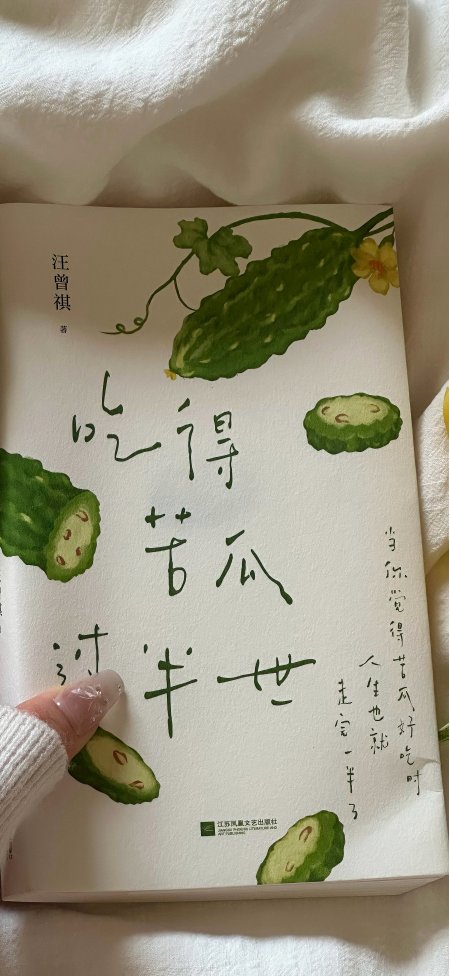 汪曾祺 著
吃得
苦瓜
过半世
当你觉得苦瓜好吃时
人生也就
走完一半了
江苏凤凰文艺出版社
JIANGSU PHOENIX LITERATURE AND
ART PUBLISHING